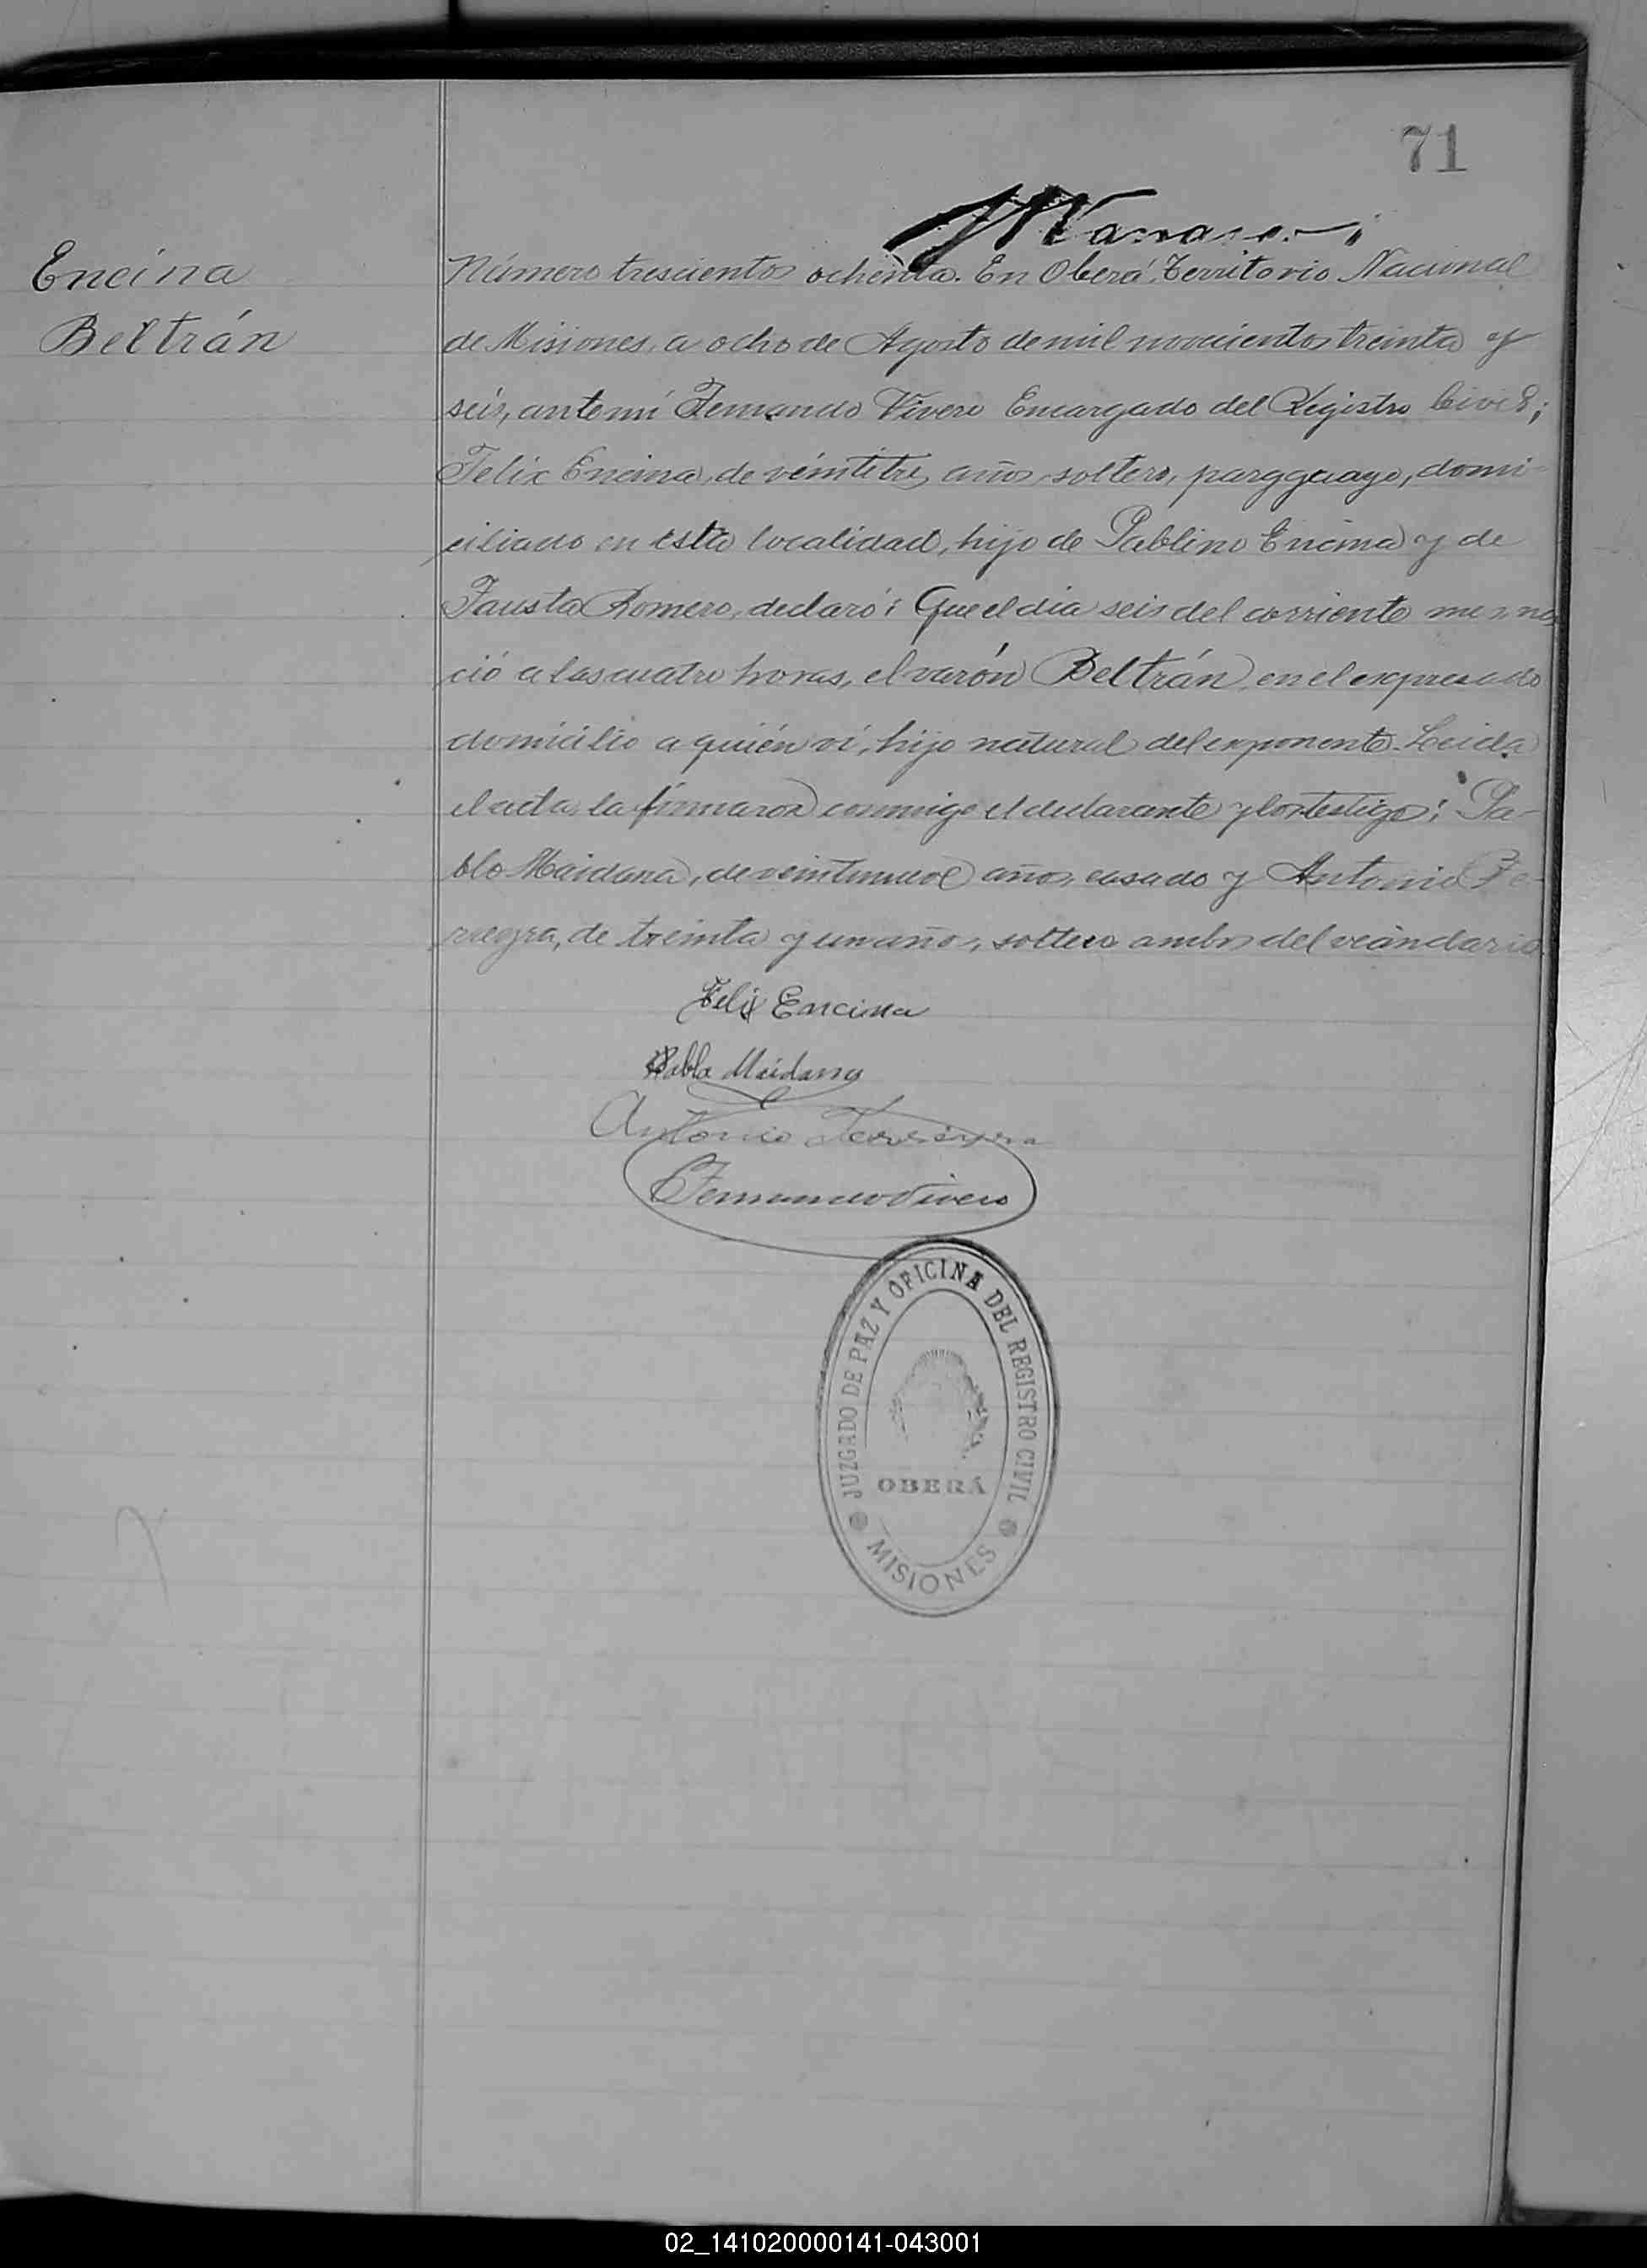 71
Encina
Beltrán
Número trescientos ochenta. En Oberá, Territorio Nacional
de Misiones, a ocho de Agosto de mil novecientos treinta y
seis, ante mí Fernando Vivero Encargado del Registro Civil;
Felix Encina, de veintitres años, soltero, pargguayo, domi-
ciliado en esta localidad, hijo de Pablino Encina y de
Fausta Romero, declaró: Que el dia seis del corriente mes, na-
ció a las cuatro horas, el varón Beltrán, en el expresado
domicilio a quién ví, hijo natural del exponente. Leida
el acta, la firmaron conmigo el declarante y los testigos: Pa-
blo Maidana, de veintinueve años, casado y Antonio Fe-
rreyra, de treinta y un años, soltero ambos del vecindario.
Felix Encina
Pablo Maidana
Antonio Ferreyra
Fernando Vivero
JUZGADO DE PAZ Y OFICINA DEL REGISTRO CIVIL
OBERÁ
MISIONES
02_141020000141-043001